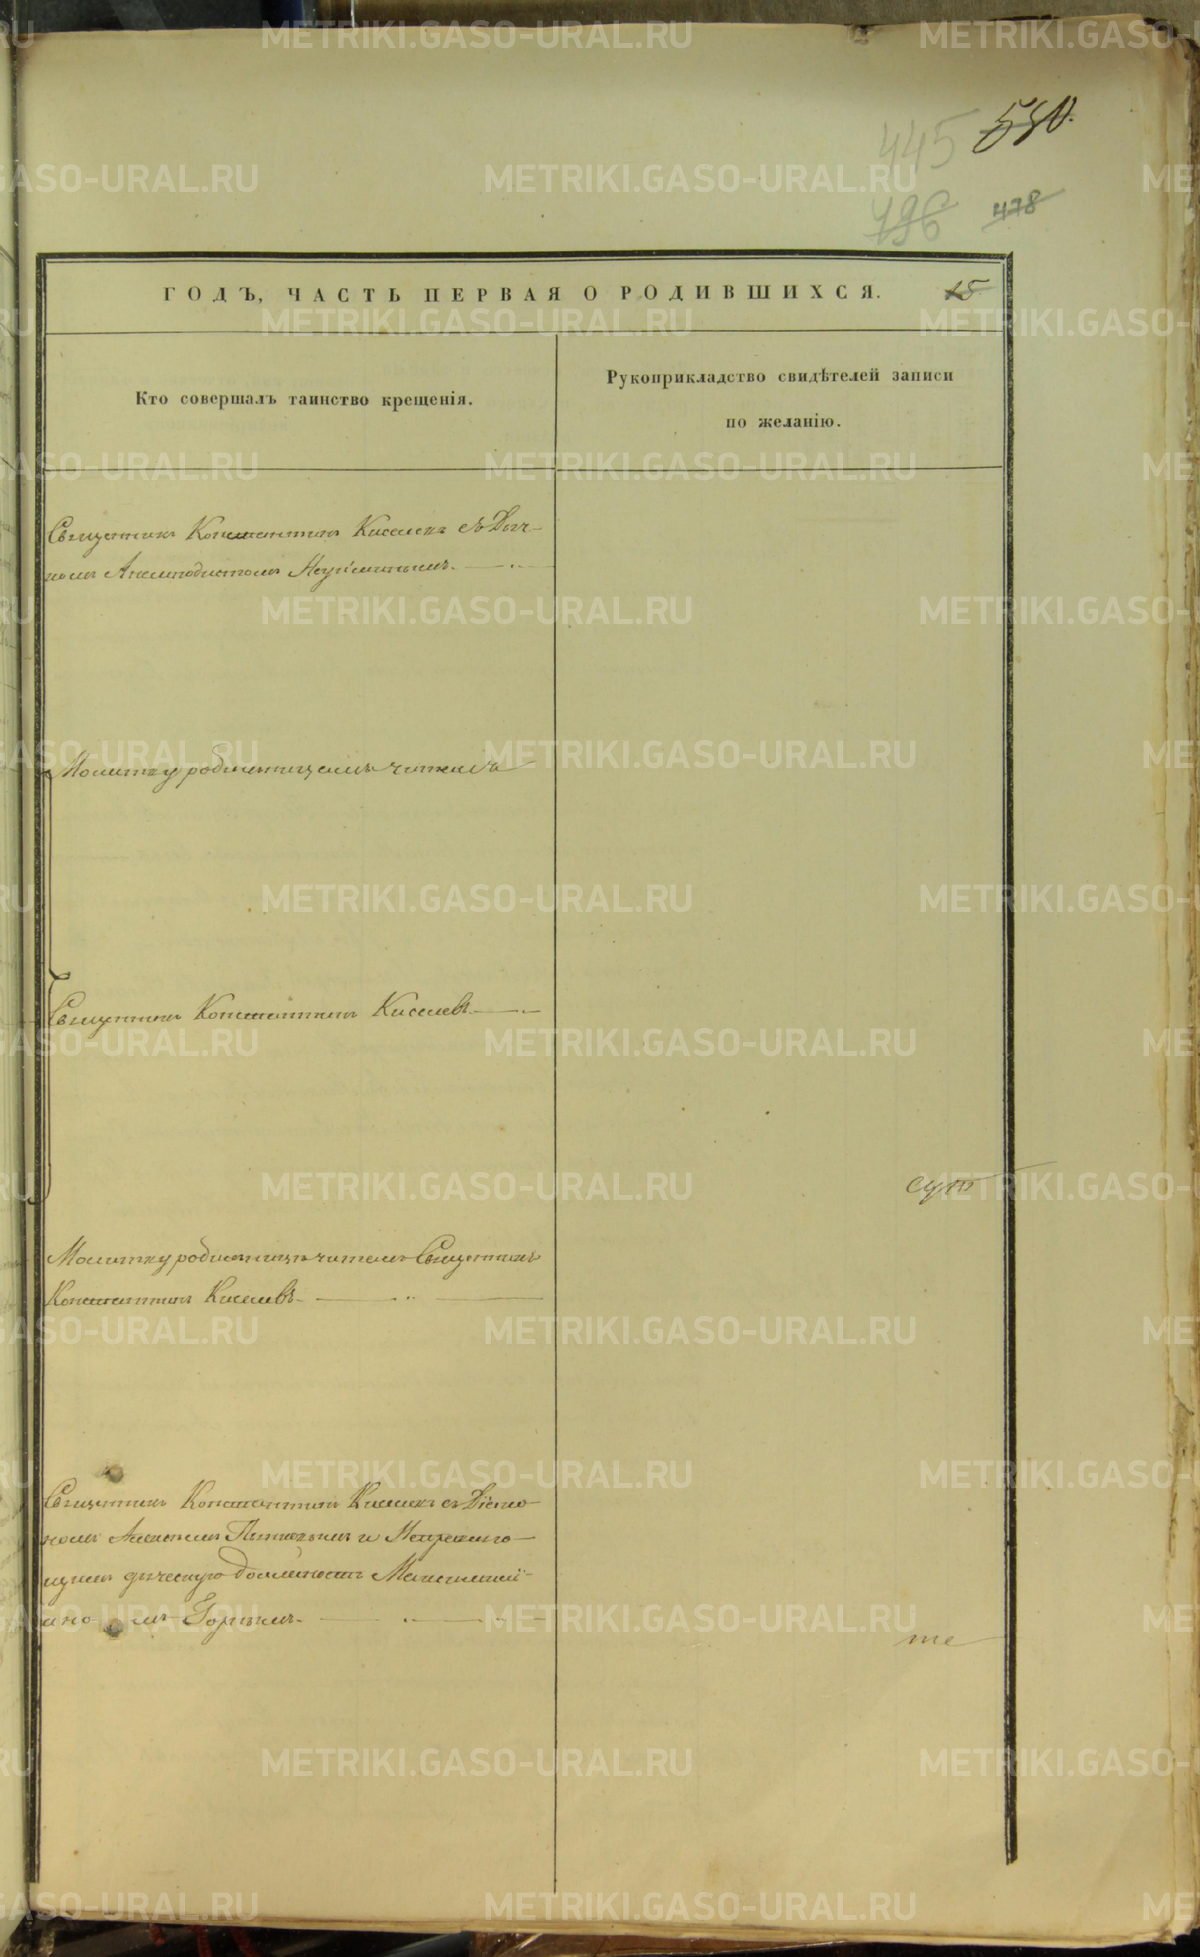 530.
445
496
478
ГОДЪ, ЧАСТЬ ПЕРВАЯ О РОДИВШИХСЯ. 15
Кто совершалъ таинство крещенія.
Рукоприкладство свидѣтелей записи
по желанію.
Священникъ Константинъ Киселевъ съ Дьяч-
комъ Анемподистомъ
Молитву родильницамъ читалъ и
Священникъ Константинъ Киселевъ
Молитву родильницѣ читалъ Священникъ
Константинъ Киселевъ
Священникъ Константинъ Киселевъ съ Діако-
номъ и
должность
Горнымъ
METRIKI.GASO-URAL.RU